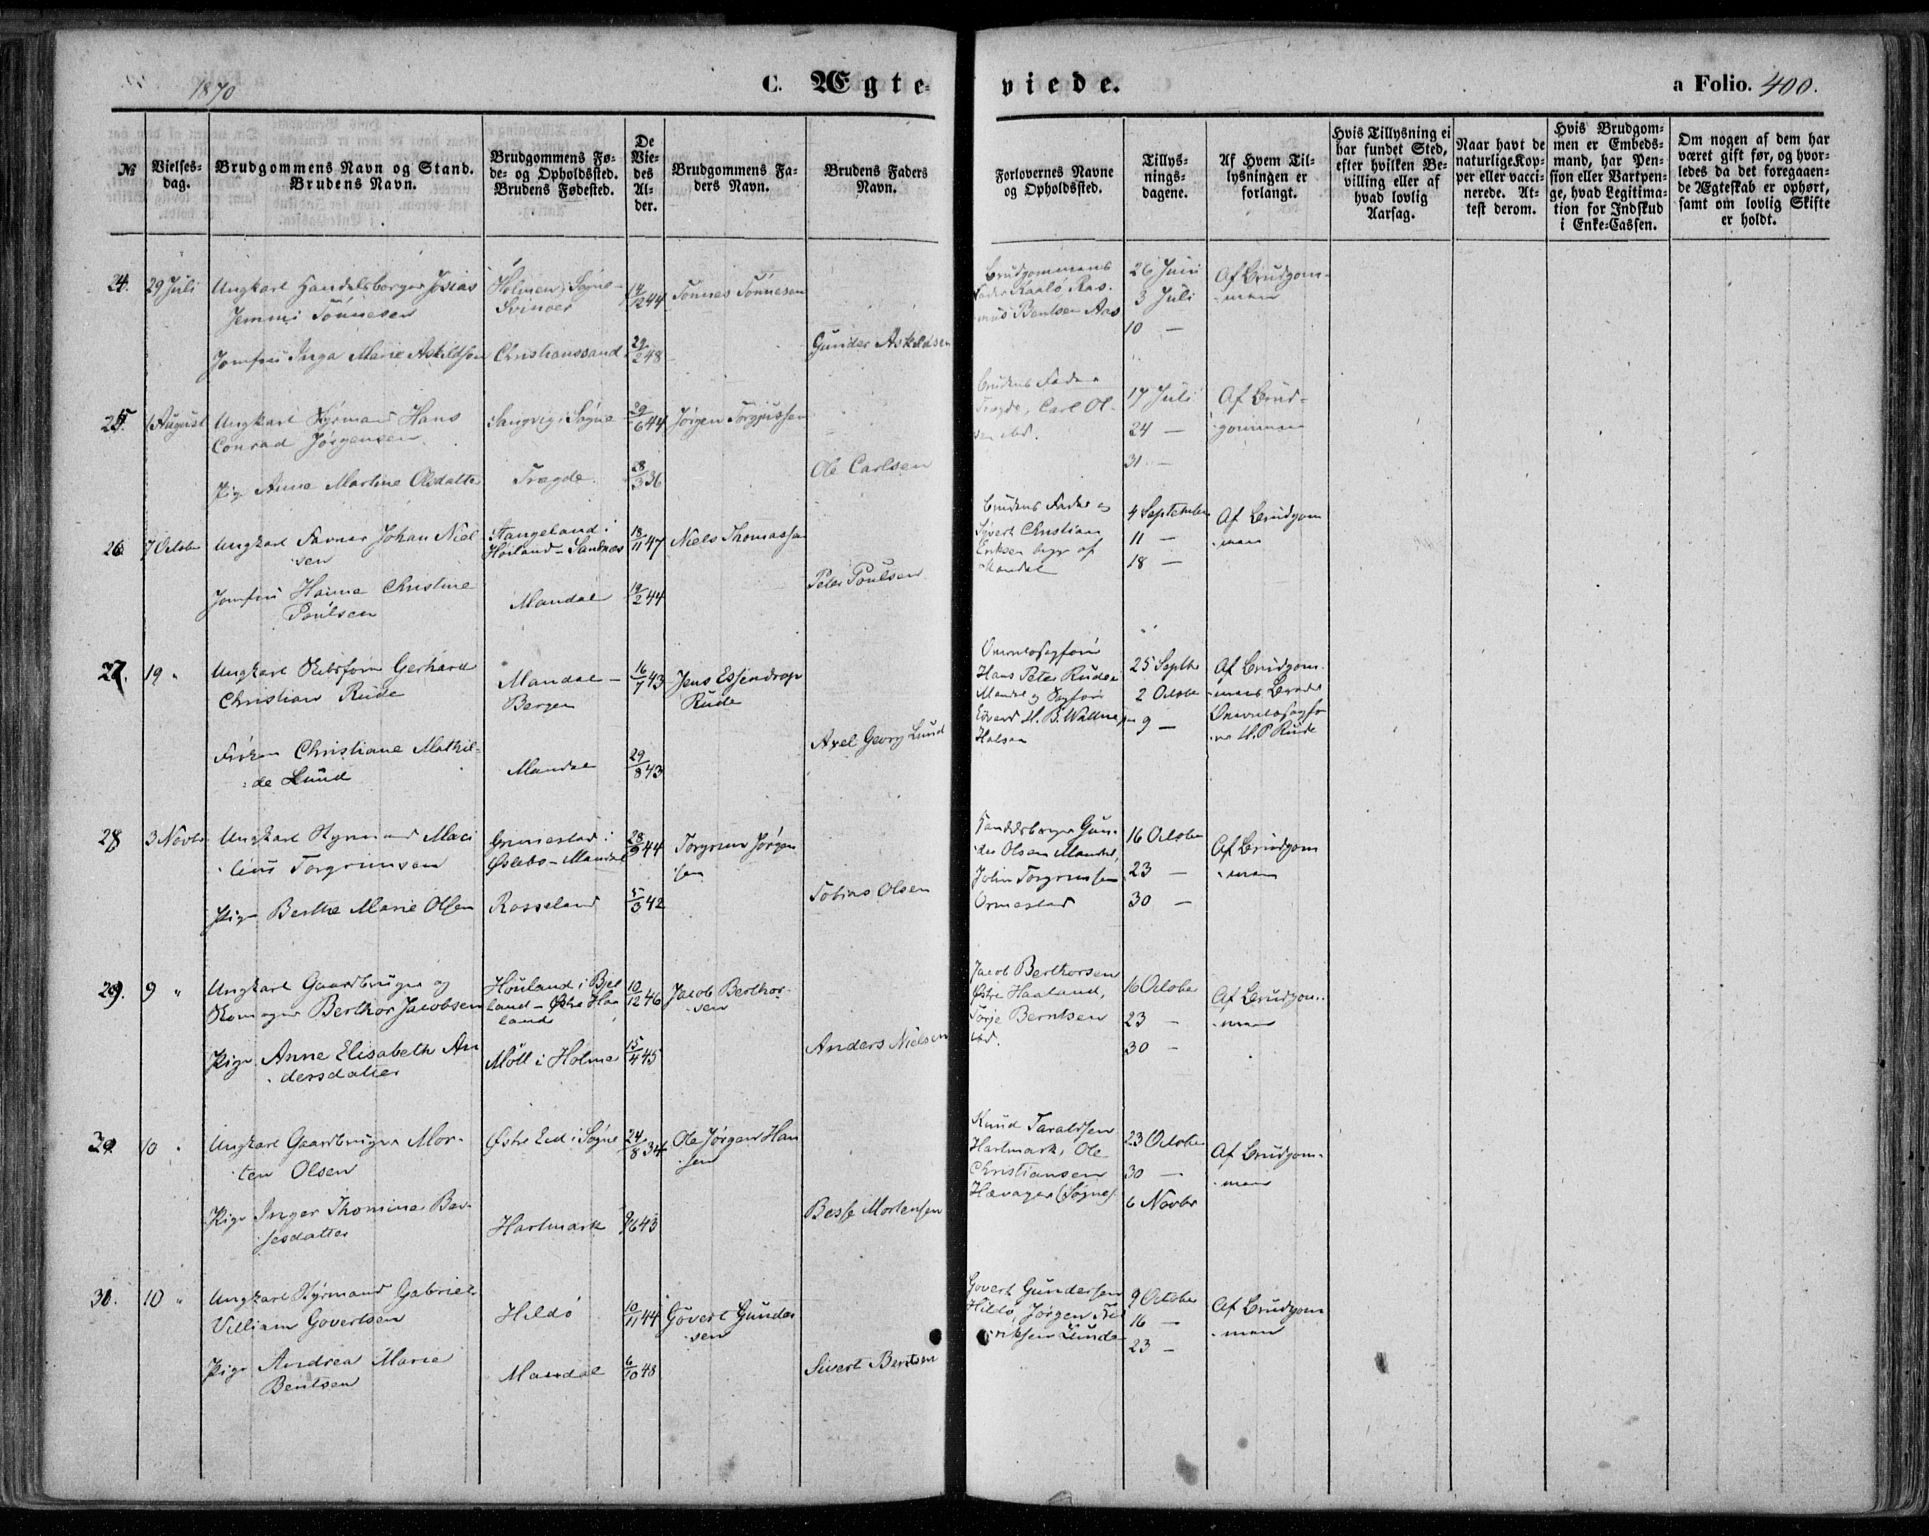 1870
C. Ægteviede.
a Folio. 400.
№
Vielses-
dag.
Brudgommens Navn og Stand.
Brudens Navn.
Brudgommens Fø-
de- og Opholdssted.
Brudens Fødested.
De
Vie-
des
Al-
der.
Brudgommens Fa-
ders Navn.
Brudens Faders
Navn.
Forlovernes Navne
og Opholdssted.
Tillys-
nings-
dagene.
Af Hvem Til-
lysningen er
forlangt.
Hvis Tillysning ei
har fundet Sted,
efter hvilken Be-
villing eller af
hvad lovlig
Aarsag.
Naar havt de
naturlige Kop-
per eller vacci-
nerede. At-
test derom.
Hvis Brudgom-
men er Embeds-
mand, har Pen-
sion eller Vartpen-
ge, hvad Legitima-
tion for Indskud
i Enke-Cassen.
Om nogen af dem har
været gift før, og hvor-
ledes da det foregaaen-
de Ægteskab er ophørt,
samt om lovlig Skifte
er holdt.
24. 29 Juli Ungkarl Handelsborger Josias
Jemmi Tønnesen
Holmen i Søgne-
Svinøer
14/12 44 Tønnes Tønnesen
Brudgommens
Fader Rasmus Bentsen Aas
26 Juni
3 Juli
10 —
Af Brudgom-
man
Jomfru Inga Marie Askildsen Christianssand 29/2 48 Gunder Askildsen
25. 1 August Ungkarl Styrmand Hans
Conrad Jørgensen
Sangvig i Søgne 29/6 44 Jørgen Torgiussen
Brudens Fader
Tregde, Carl Ol-
sen ibd.
17 Juli
24 —
31 —
Af Brud-
gommen
Pige Anne Martine Olsdatter Tregde 28/3 36 Ole Carlsen
26. 7 Octobr Ungkarl Farver Johan Niel-
sen
Stangeland i
Høiland - Sandnes
18/11 47 Niels Thomassen
Brudens Fader og
Sivert Christian
Eriksen begge af
Mandal
4 September
11 —
18 —
Af Brudgom
man
Jomfru Hanna Christine
Poulsen
Mandal 19/2 44 Peter Poulsen
27. 19 " Ungkarl Gerhard
Christian Rude
Mandal -
Bergen
16/7 43 Jens Essendrop
Rude
Hans Peter Rude
Mandal og
Edvard H. B.
Halsen
25 Septbr
2 Octobr
9 —
Af Brudgom-
mens Broder
H. P. Rude
Frøken Christiane Mathil-
de Lund
Mandal 29/8 43 Axel Georg Lund
28. 3 Novbr Ungkarl Styrmand Maci-
lius Torgrimsen
Grimestad i
Øslebø - Mandal
28/9 44 Torgrim Jørgen
sen
Handelsborger Gun-
der Olsen Mandal,
John Torgrimsen
Ormestad
16 Octobr
23 —
30 —
Af Brudgom
man
Pige Berthe Marie Olsen Rosseland 5/3 42 Tobias Olsen
29. 9 " Ungkarl Gaardbruger og
Berthor Jacobsen
Houland i Bjel-
land - Østre Haa-
land
10/12 46 Jacob Berthor-
sen
Jacob Berthorsen
Østre Haaland,
Torje Berntsen
ibd.
16 Octobr
23 —
30 —
Af Brudgom-
man
Pige Anne Elisabeth An-
dersdatter
Møll i Holme 15/4 45 Anders Nielsen
30. 10 " Ungkarl Gaardbruger Mor-
ten Olsen
Østre Eid i Søgne 24/8 34 Ole Jørgen Han
sen
Knud Taraldsen
Hartmark, Ole
Christiansen
Hævager (Søgne)
23 Octobr
30 —
6 Novbr
Af Brudgom-
man
Pige Inger Thomine Bes-
sesdatter
Hartmark 9/6 43 Besse Mortensen
31. 10 " Ungkarl Styrmand Gabriel
Villiam Govertsen
Hildø 10/11 44 Govert Gunder
sen
Govert Gundersen
Hildø, Jørgen Fre
driksen Lunde
9 Octobr
16 —
23 —
Af Brudgom
man
Pige Andrea Marie
Bentsen
Mandal 6/10 48 Sivert Bentsen